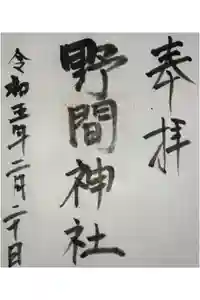 奉拝
野間神社
令和五年二月二十日